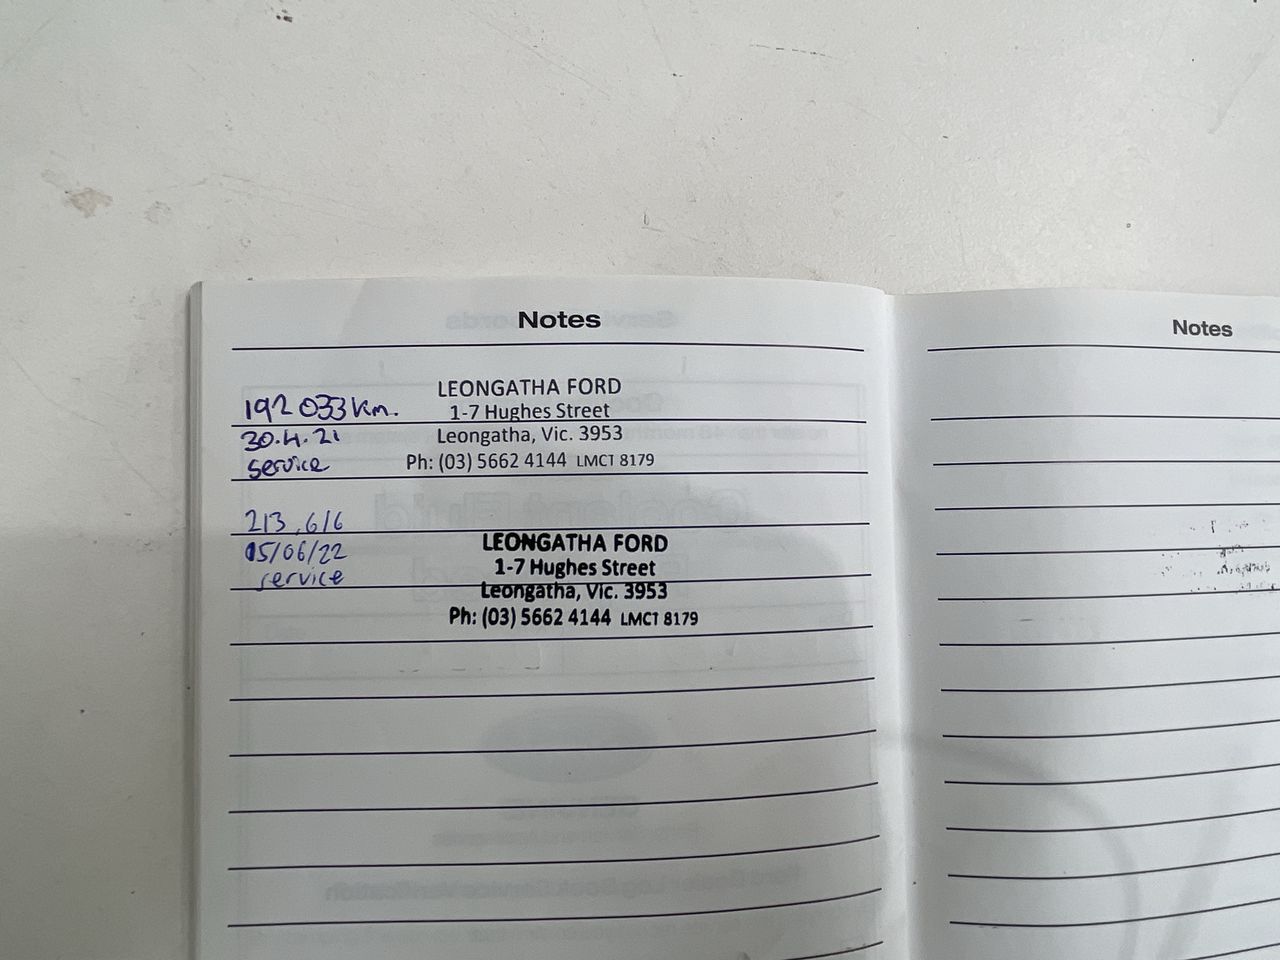 Notes
192 033 km.
30.4.21
service
LEONGATHA FORD
1-7 Hughes Street
Leongatha, Vic. 3953
Ph: (03) 5662 4144 LMCT 8179
213,616
15/06/22
service
LEONGATHA FORD
1-7 Hughes Street
Leongatha, Vic. 3953
Ph: (03) 5662 4144 LMCT 8179
Notes